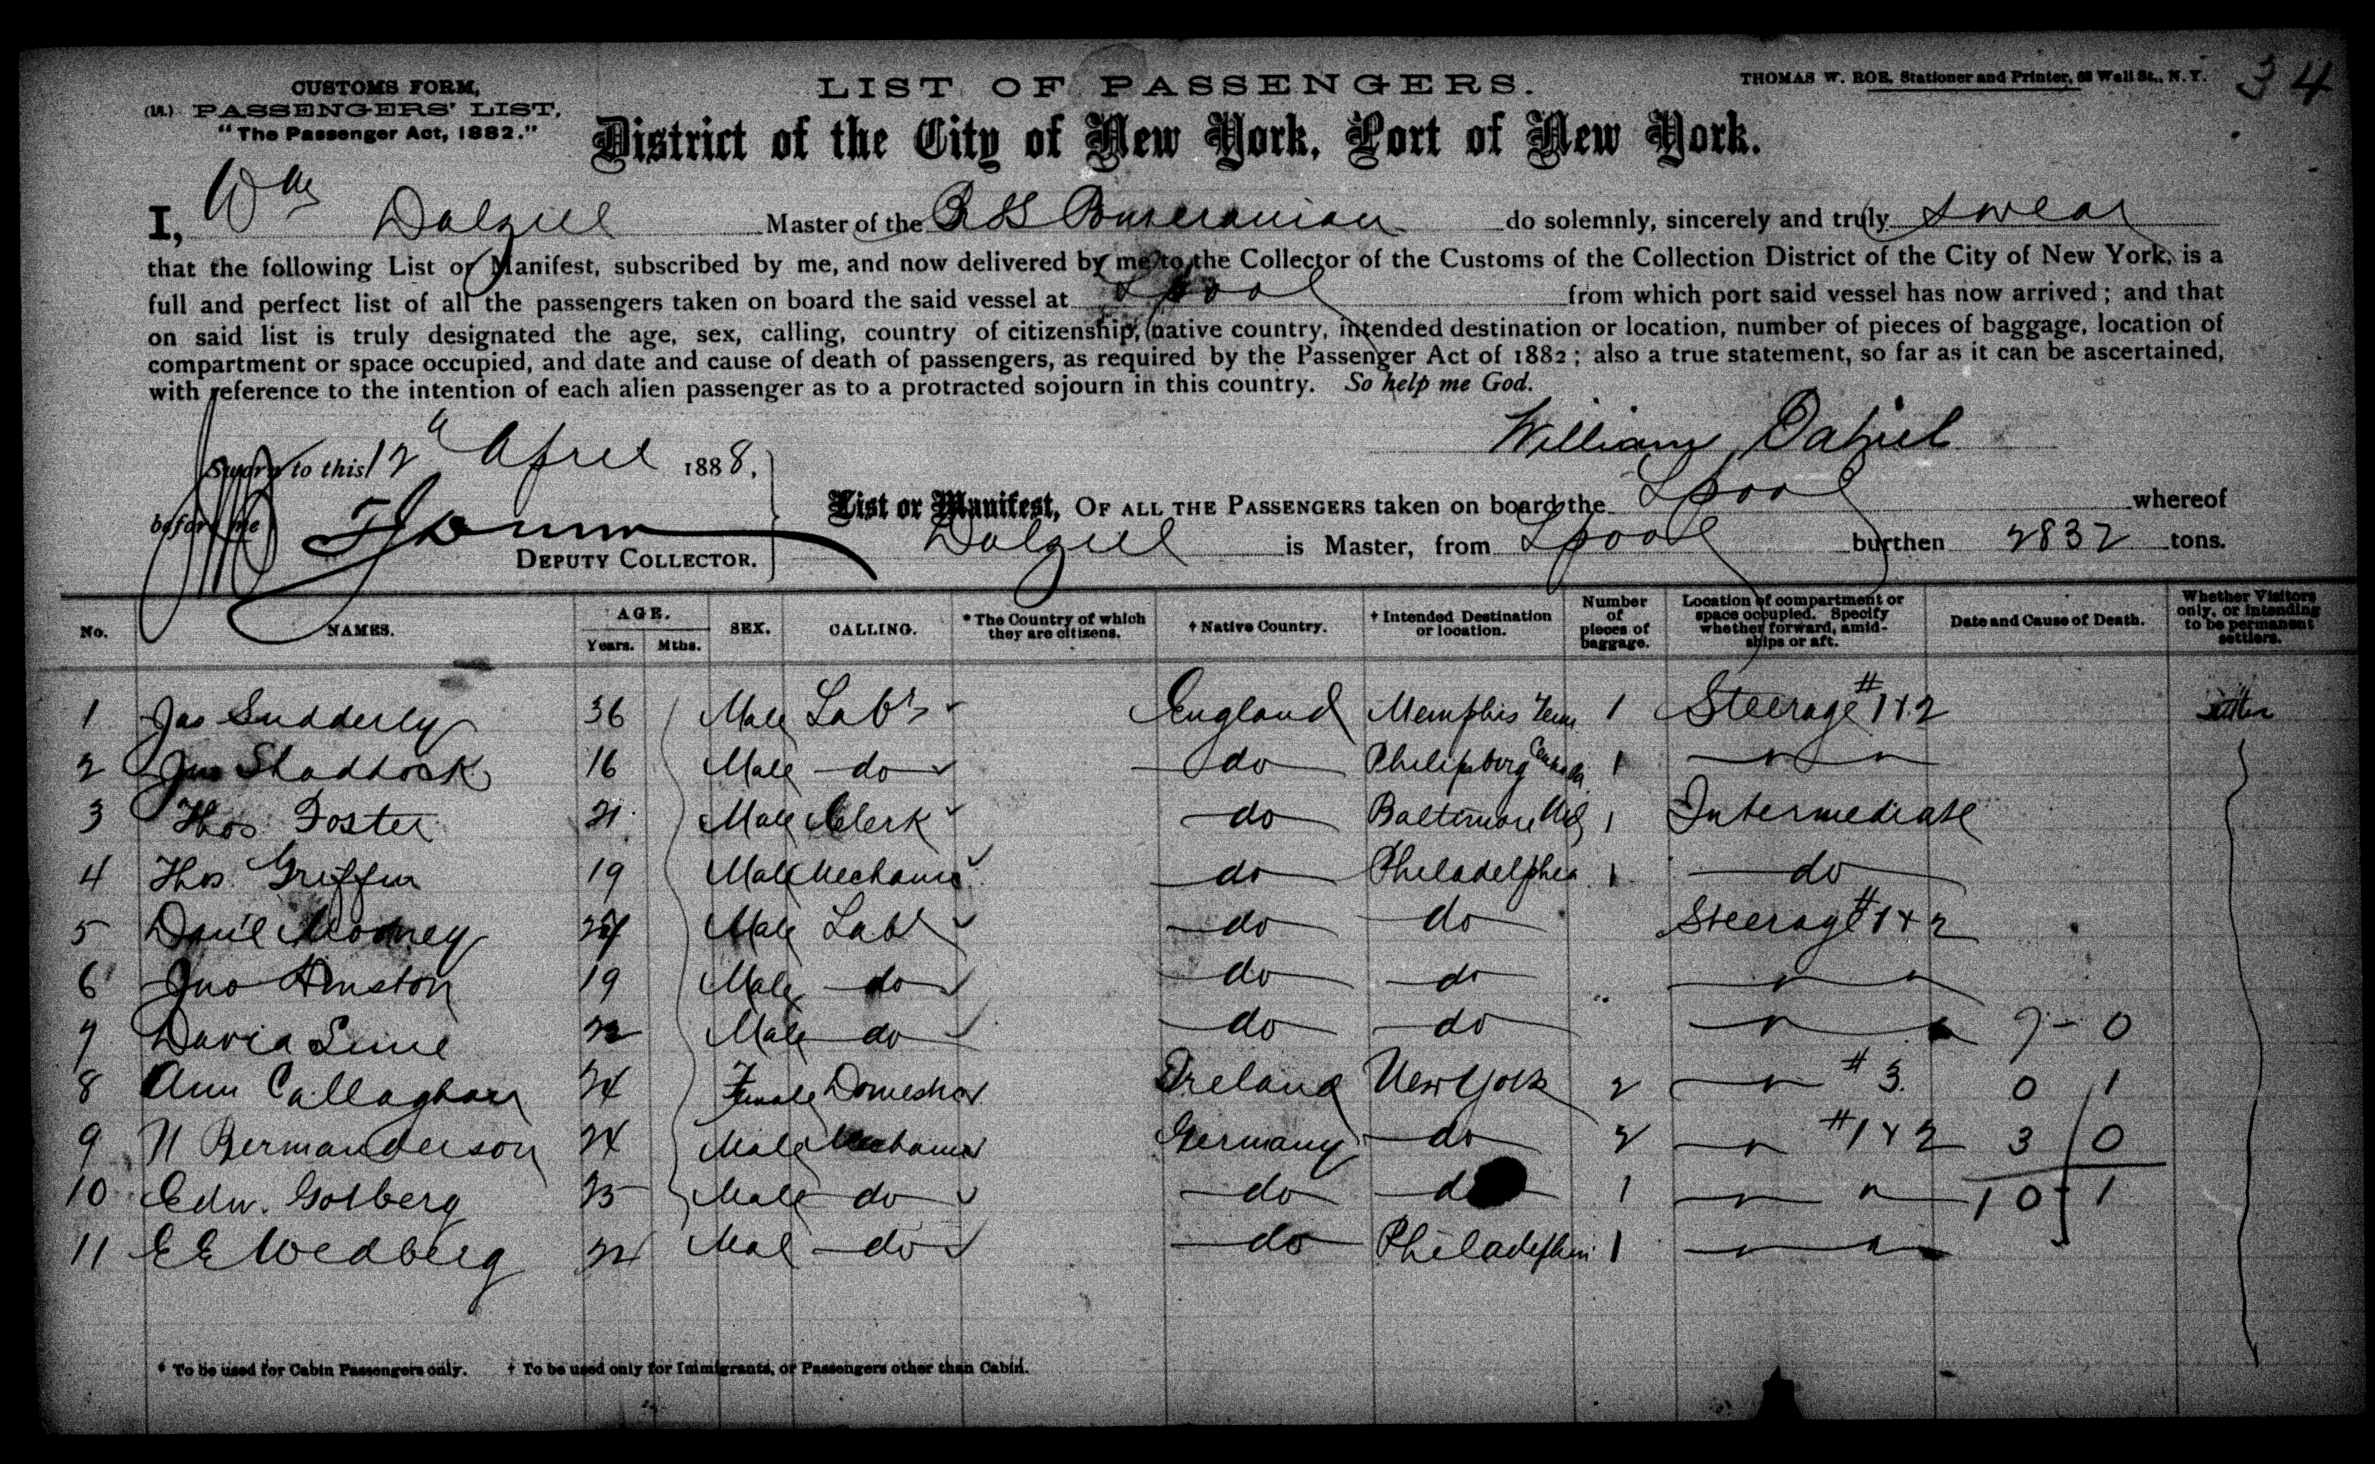 CUSTOMS FORM,
PASSENGERS' LIST,
"The Passenger Act, 1882."
LIST OF PASSENGERS.
THOMAS W. ROE, Stationer and Printer, 63 Wall St., N. Y.
34
District of the City of New York, Port of New York.
I, Wm Dalziel Master of the SS Pomeranian do solemnly, sincerely and truly swear
that the following List or Manifest, subscribed by me, and now delivered by me to the Collector of the Customs of the Collection District of the City of New York, is a
full and perfect list of all the passengers taken on board the said vessel at Lpool from which port said vessel has now arrived; and that
on said list is truly designated the age, sex, calling, country of citizenship, native country, intended destination or location, number of pieces of baggage, location of
compartment or space occupied, and date and cause of death of passengers, as required by the Passenger Act of 1882; also a true statement, so far as it can be ascertained,
with reference to the intention of each alien passenger as to a protracted sojourn in this country. So help me God.
William Dalziel
Sworn to this 12th April 1888,
before me
DEPUTY COLLECTOR.
List or Manifest, OF ALL THE PASSENGERS taken on board the Lpool whereof
Dalziel is Master, from Lpool burthen 2832 tons.
No. NAMES. AGE. Years. Mths. SEX. CALLING. * The Country of which they are citizens. † Native Country. † Intended Destination or location. Number of pieces of baggage. Location of compartment or space occupied. Specify whether forward, amidships or aft. Date and Cause of Death. Whether Visitors only, or intending to be permanent settlers.
1 Jas Sudderly 36 Male Labr England Memphis Tenn 1 Steerage #1+2 settler
2 Jno Shaddock 16 Male do do Philipsburg Canada 1 " "
3 Thos Foster 21 Male Clerk do Baltimore Md 1 Intermediate
4 Thos Griffin 19 Male Mechanic do Philadelphia 1 do
5 Danl Mooney 24 Male Labr do do Steerage #1+2
6 Jno Amston 19 Male do do do " "
7 David Lime 22 Male do do do " " 7-0
8 Ann Callaghan 24 Female Domestic Ireland New York 2 " #3. 0 1
9 N Bermanderson 24 Male Mechanic Germany do 2 " #1+2 3 0
10 Edw. Golberg 25 Male do do do 1 " " 10-1
11 E E Wedberg 22 Mal do do Philadelphia 1 " "
* To be used for Cabin Passengers only. † To be used only for Immigrants, or Passengers other than Cabin.